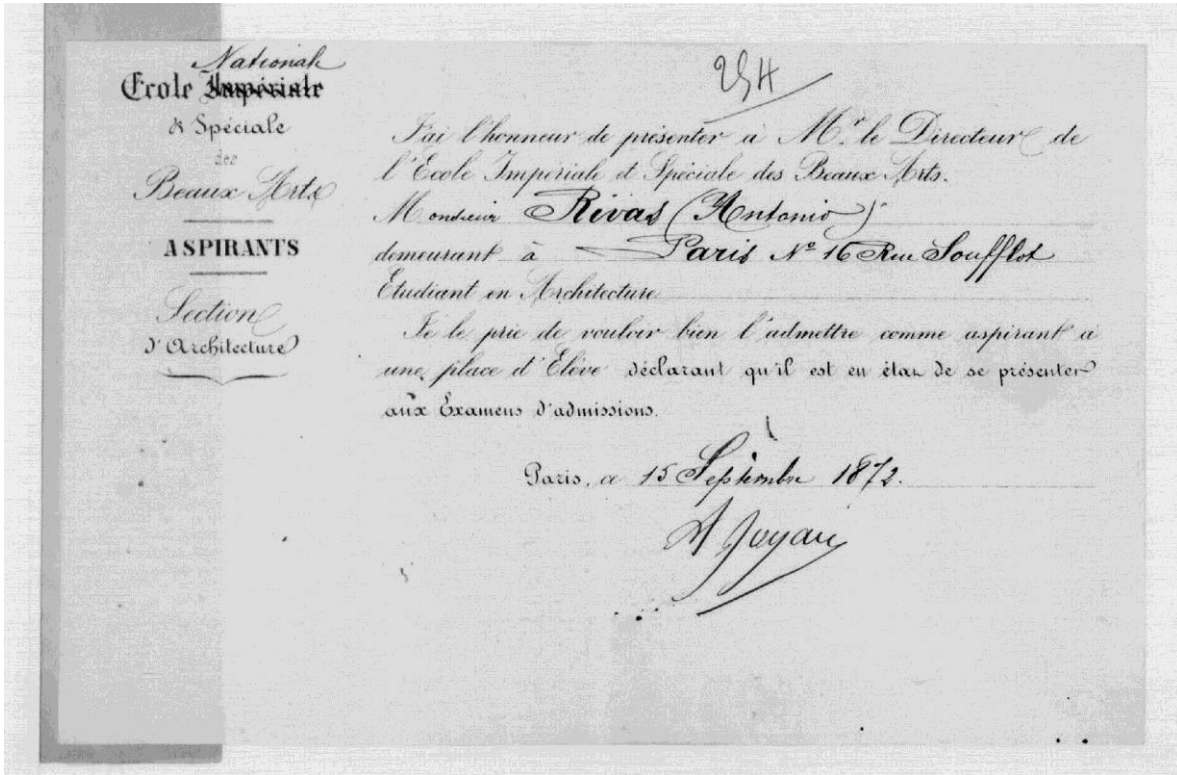 Nationale
Ecole Impériale
& Spéciale
des
Beaux Arts
ASPIRANTS
Section
d'Architecture
254
J'ai l'honneur de présenter à Mr. le Directeur de
l'Ecole Impériale et Spéciale des Beaux Arts.
Monsieur Rivas (Antonio)
demeurant à Paris No 16 Rue Soufflot
Etudiant en Architecture
Je le prie de vouloir bien l'admettre comme aspirant à
une place d'Elève déclarant qu'il est en état de se présenter
aux Examens d'admissions.
Paris, ce 15 Septembre 1872.